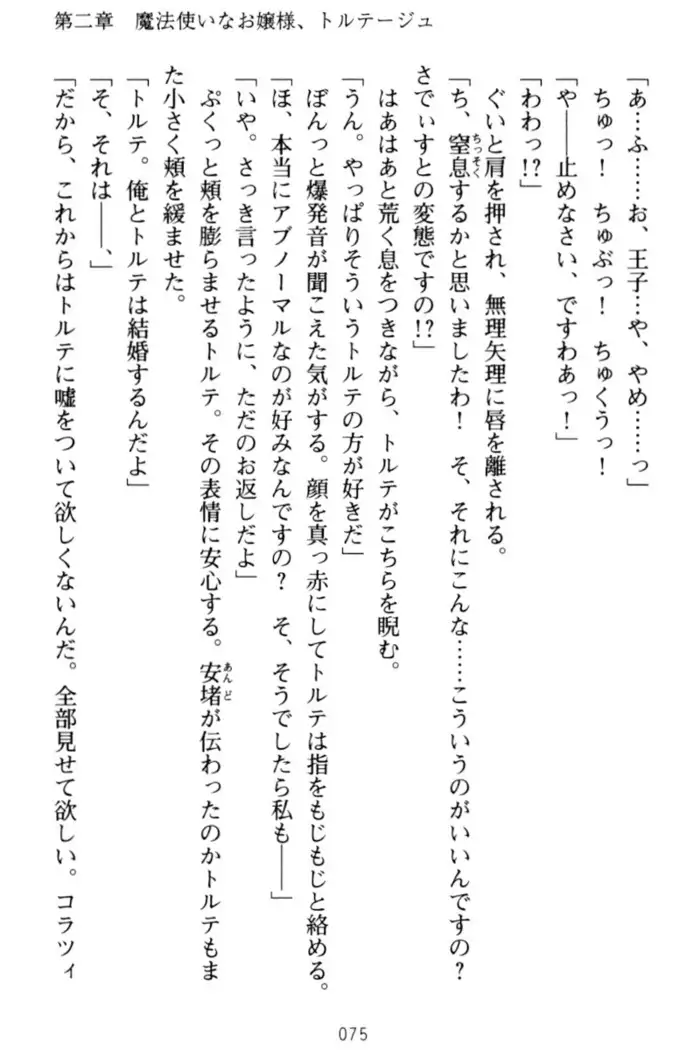 第二章　魔法使いなお嬢様、トルテージュ
「あ…ふ……お、王子…や、やめ……っ」
ちゅっ！　ちゅぶっ！　ちゅくうっ！
「や――止めなさい、ですわあっ！」
「わわっ!?」
ぐいと肩を押され、無理矢理に唇を離される。
「ち、窒息するかと思いましたわ！　そ、それにこんな……こういうのがいいんですの？
さでぃすとの変態ですの!?」
はあはあと荒く息をつきながら、トルテがこちらを睨む。
「うん。やっぱりそういうトルテの方が好きだ」
ぽんっと爆発音が聞こえた気がする。顔を真っ赤にしてトルテは指をもじもじと絡める。
「ほ、本当にアブノーマルなのが好みなんですの？　そ、そうでしたら私も――」
「いや。さっき言ったように、ただのお返しだよ」
ぷくっと頬を膨らませるトルテ。その表情に安心する。安堵が伝わったのかトルテもま
た小さく頬を緩ませた。
「トルテ。俺とトルテは結婚するんだよ」
「そ、それは――、」
「だから、これからはトルテに嘘をついて欲しくないんだ。全部見せて欲しい。コラツィ
075